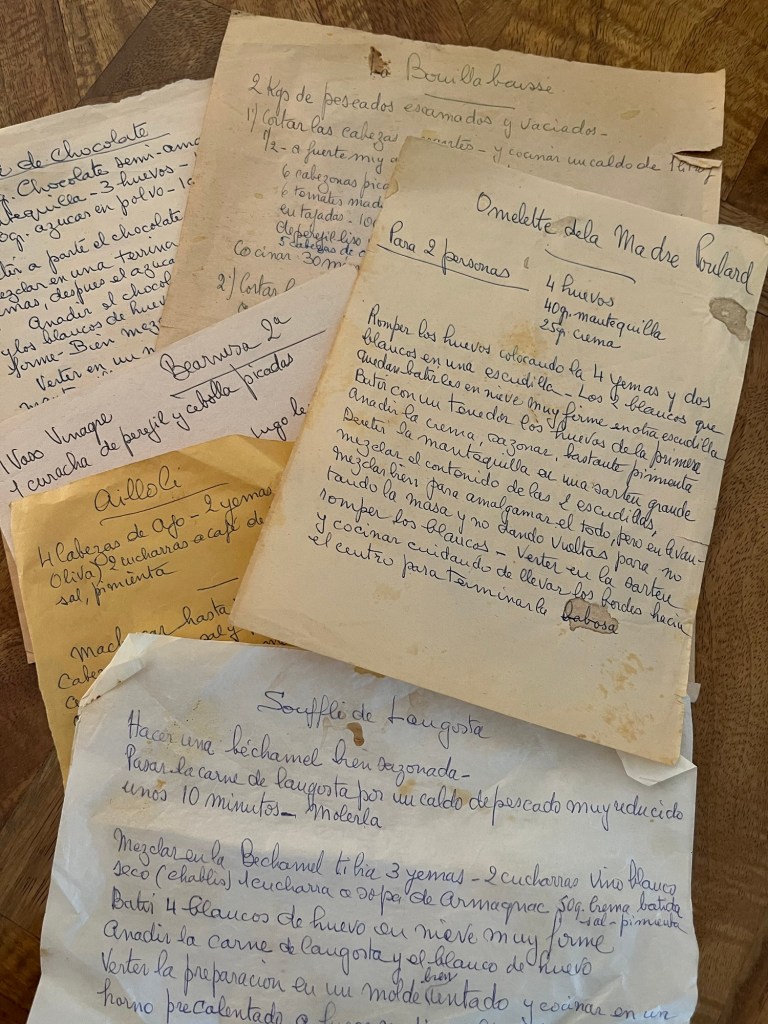 Bouillabaisse
2 Kgs de pescados escamados y vaciados -
1) Cortar las cabezas
- y cocinar un caldo de
1/2 - a fuerte muy a
6 cabezonas pica
6 tomates madu
en tajadas - 10
de perejil liso
5 cabezas de a
Cocinar 30 mi
2) Cortar l
de Chocolate
g. Chocolate semi-ama
tequilla - 3 huevos -
0g. azucar en polvo - 1
tir a parte el chocolate
ezclar en una terrina
mas, despues el azuca
Anadir el choco
y los blancos de huev
forme - Bien mez
Verter en un m
Omelette de la Madre Poulard
Para 2 personas
4 huevos
40g. mantequilla
25g. crema
Romper los huevos colocando la 4 yemas y dos
blancos en una escudilla - Los 2 blancos que
quedan batirles en nieve muy firme en otra escudilla
Batir con un tenedor los huevos de la primera
Anadir la crema, sazonar, bastante pimienta
Deretir la mantequilla en una sarten grande
mezclar el contenido de las 2 escudillas,
mezclar bien para amalgamar el todo, pero en levan-
tando la masa y no dando vueltas para no
romper los blancos - Verter en la sarten
y cocinar cuidando de llevar los bordes hacia
el centro para terminarla babosa
Bearnesa 2a
1 Vaso Vinagre
1 curacha de perejil y cebolla picadas
lugo le
Ailloli
4 Cabezas de Ajo - 2 yemas
Oliva, 2 cucharas a café de
sal, pimienta
Machacar hasta
Cabez
sal y
Souffli de Langosta
Hacer una béchamel bien sazonada -
Pasar la carne de langosta por un caldo de pescado muy reducido
unos 10 minutos - Molerla
Mezclar en la Bechamel tibia 3 yemas - 2 cucharras vino blanco
seco (chablis) 1 cucharra a sopa de Armagnac 50g. crema batida
sal - pimienta
Batir 4 blancos de huevo en nieve muy firme
Anadir la carne de langosta y el blanco de huevo
bien
Verter la preparacion en un molde untado y cocinar en un
horno precalentado a